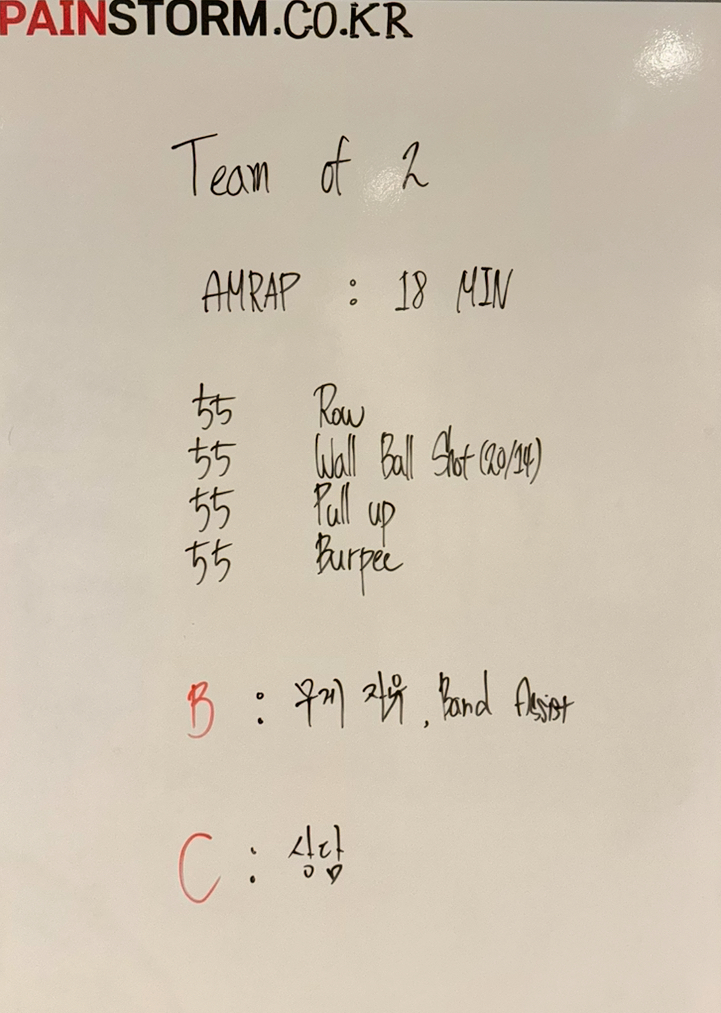 PAINSTORM.CO.KR
Team of 2
AMRAP : 18 MIN
55 Row
55 Wall Ball Shot (20/14)
55 Pull up
55 Burpee
B : 무게 자유, Band Assist
C : 상담